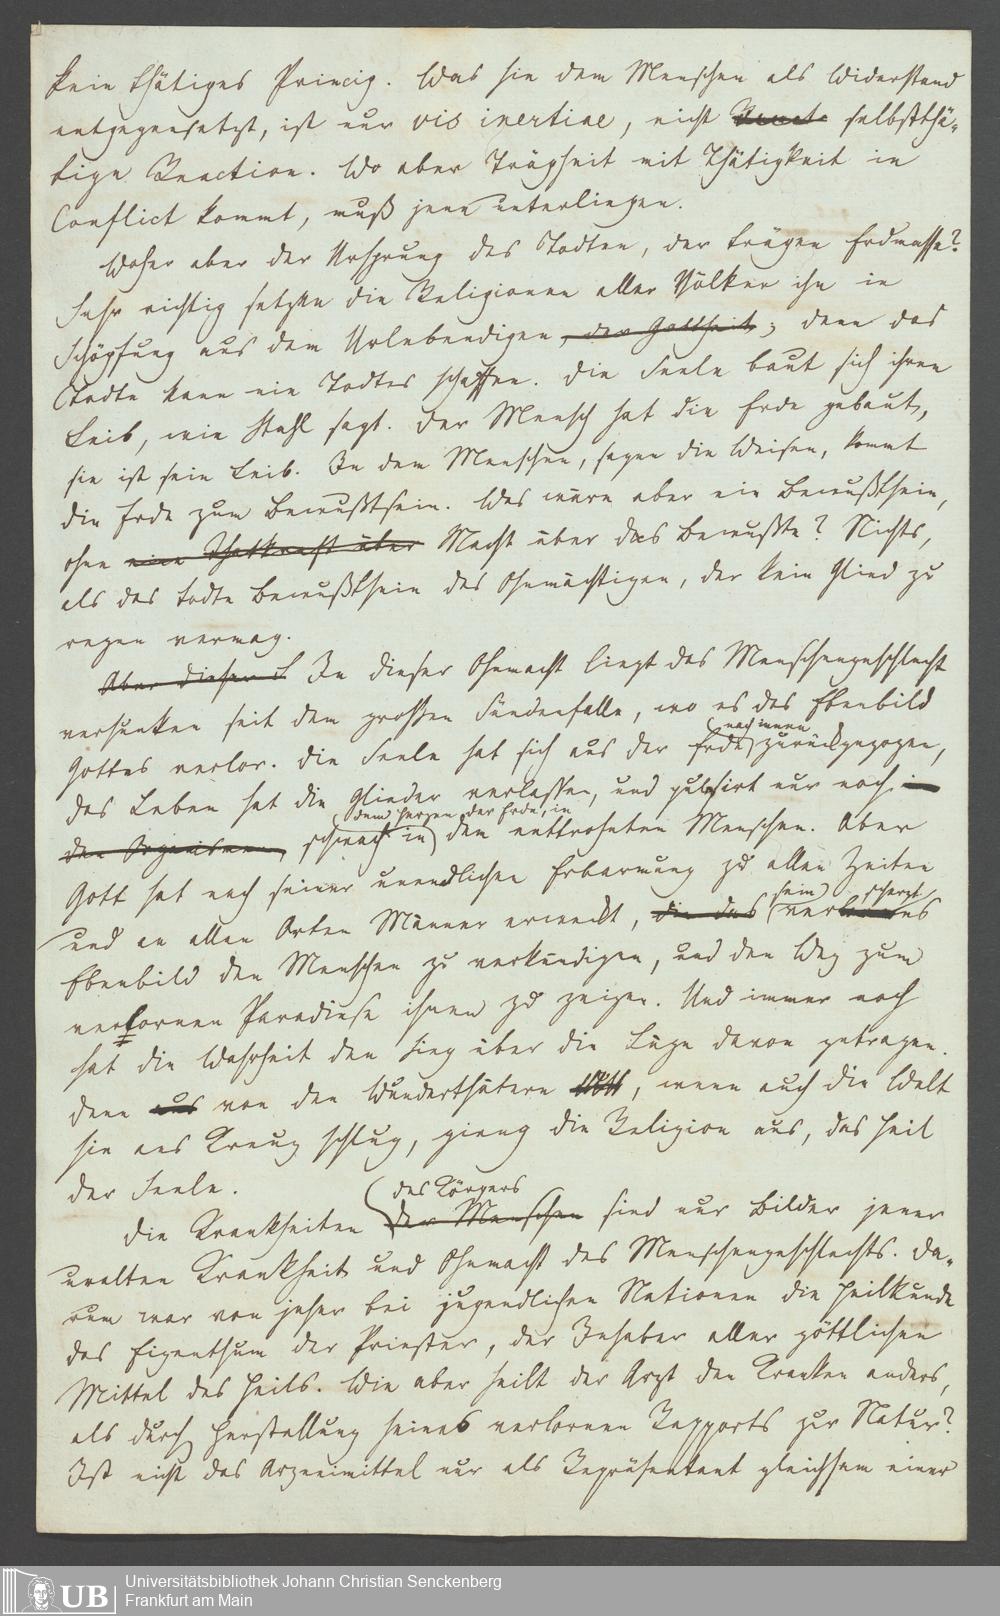 kein thätiges Princip. Was sie dem Menschen als Widerstand
entgegensetzt, ist nur vis inertiae, nicht selbstthä-
tige Reaction. Wo aber Trägheit mit Thätigkeit in
Conflict kommt, muß jene unterliegen.
Woher aber der Ursprung des Todten, der trägen Erdmasse?
Sehr richtig setzten die Religionen aller Völker ihn in
Schöpfung aus dem Urlebendigen, der Gottheit; denn das
Todte kann nie Todtes schaffen. Die Seele baut sich ihren
Leib, wie Stahl sagt. Der Mensch hat die Erde gebaut,
sie ist sein Leib. In dem Menschen, sagen die Weisen, kommt
die Erde zum Bewußtsein. Was wäre aber ein Bewußtsein,
ohne eine Thatkraft über Macht über das Bewußte? Nichts,
als das todte Bewußtsein des Ohnmächtigen, der kein Glied zu
regen vermag.
Aber dieser In dieser Ohnmacht liegt das Menschengeschlecht
versunken seit dem großen Sündenfalle, wo es das Ebenbild
Gottes verlor. Die Seele hat sich aus der Erde nach innen zurückgezogen,
das Leben hat die Glieder verlassen, und pulsirt nur noch in
den Organismen, schwach in dem Herzen der Erde, in dem entthronten Menschen. Aber
Gott hat nach seiner unendlichen Erbarmung zu allen Zeiten
und an allen Orten Männer erweckt, die das sein verscherztes
Ebenbild den Menschen zu verkündigen, und den Weg zum
verlornen Paradiese ihnen zu zeigen. Und immer noch
hat die Wahrheit den Sieg über die Lüge davon getragen.
denn aus von den Wunderthätern, wenn auch die Welt
sie ans Kreuz schlug, gieng die Religion aus, das Heil
der Seele.
Die Krankheiten des Körpers der Menschen sind nur Bilder jener
uralten Krankheit und Ohnmacht des Menschengeschlechts. Da-
rum war von jeher bei jugendlichen Nationen die Heilkunde
das Eigenthum der Priester, der Inhaber aller göttlichen
Mittel des Heils. Wie aber heilt der Arzt den Kranken anders,
als durch Herstellung seines verlornen Rapports zur Natur?
Ist nicht das Arzneimittel nur als Repräsentant gleichsam einer
UB
Universitätsbibliothek Johann Christian Senckenberg
Frankfurt am Main